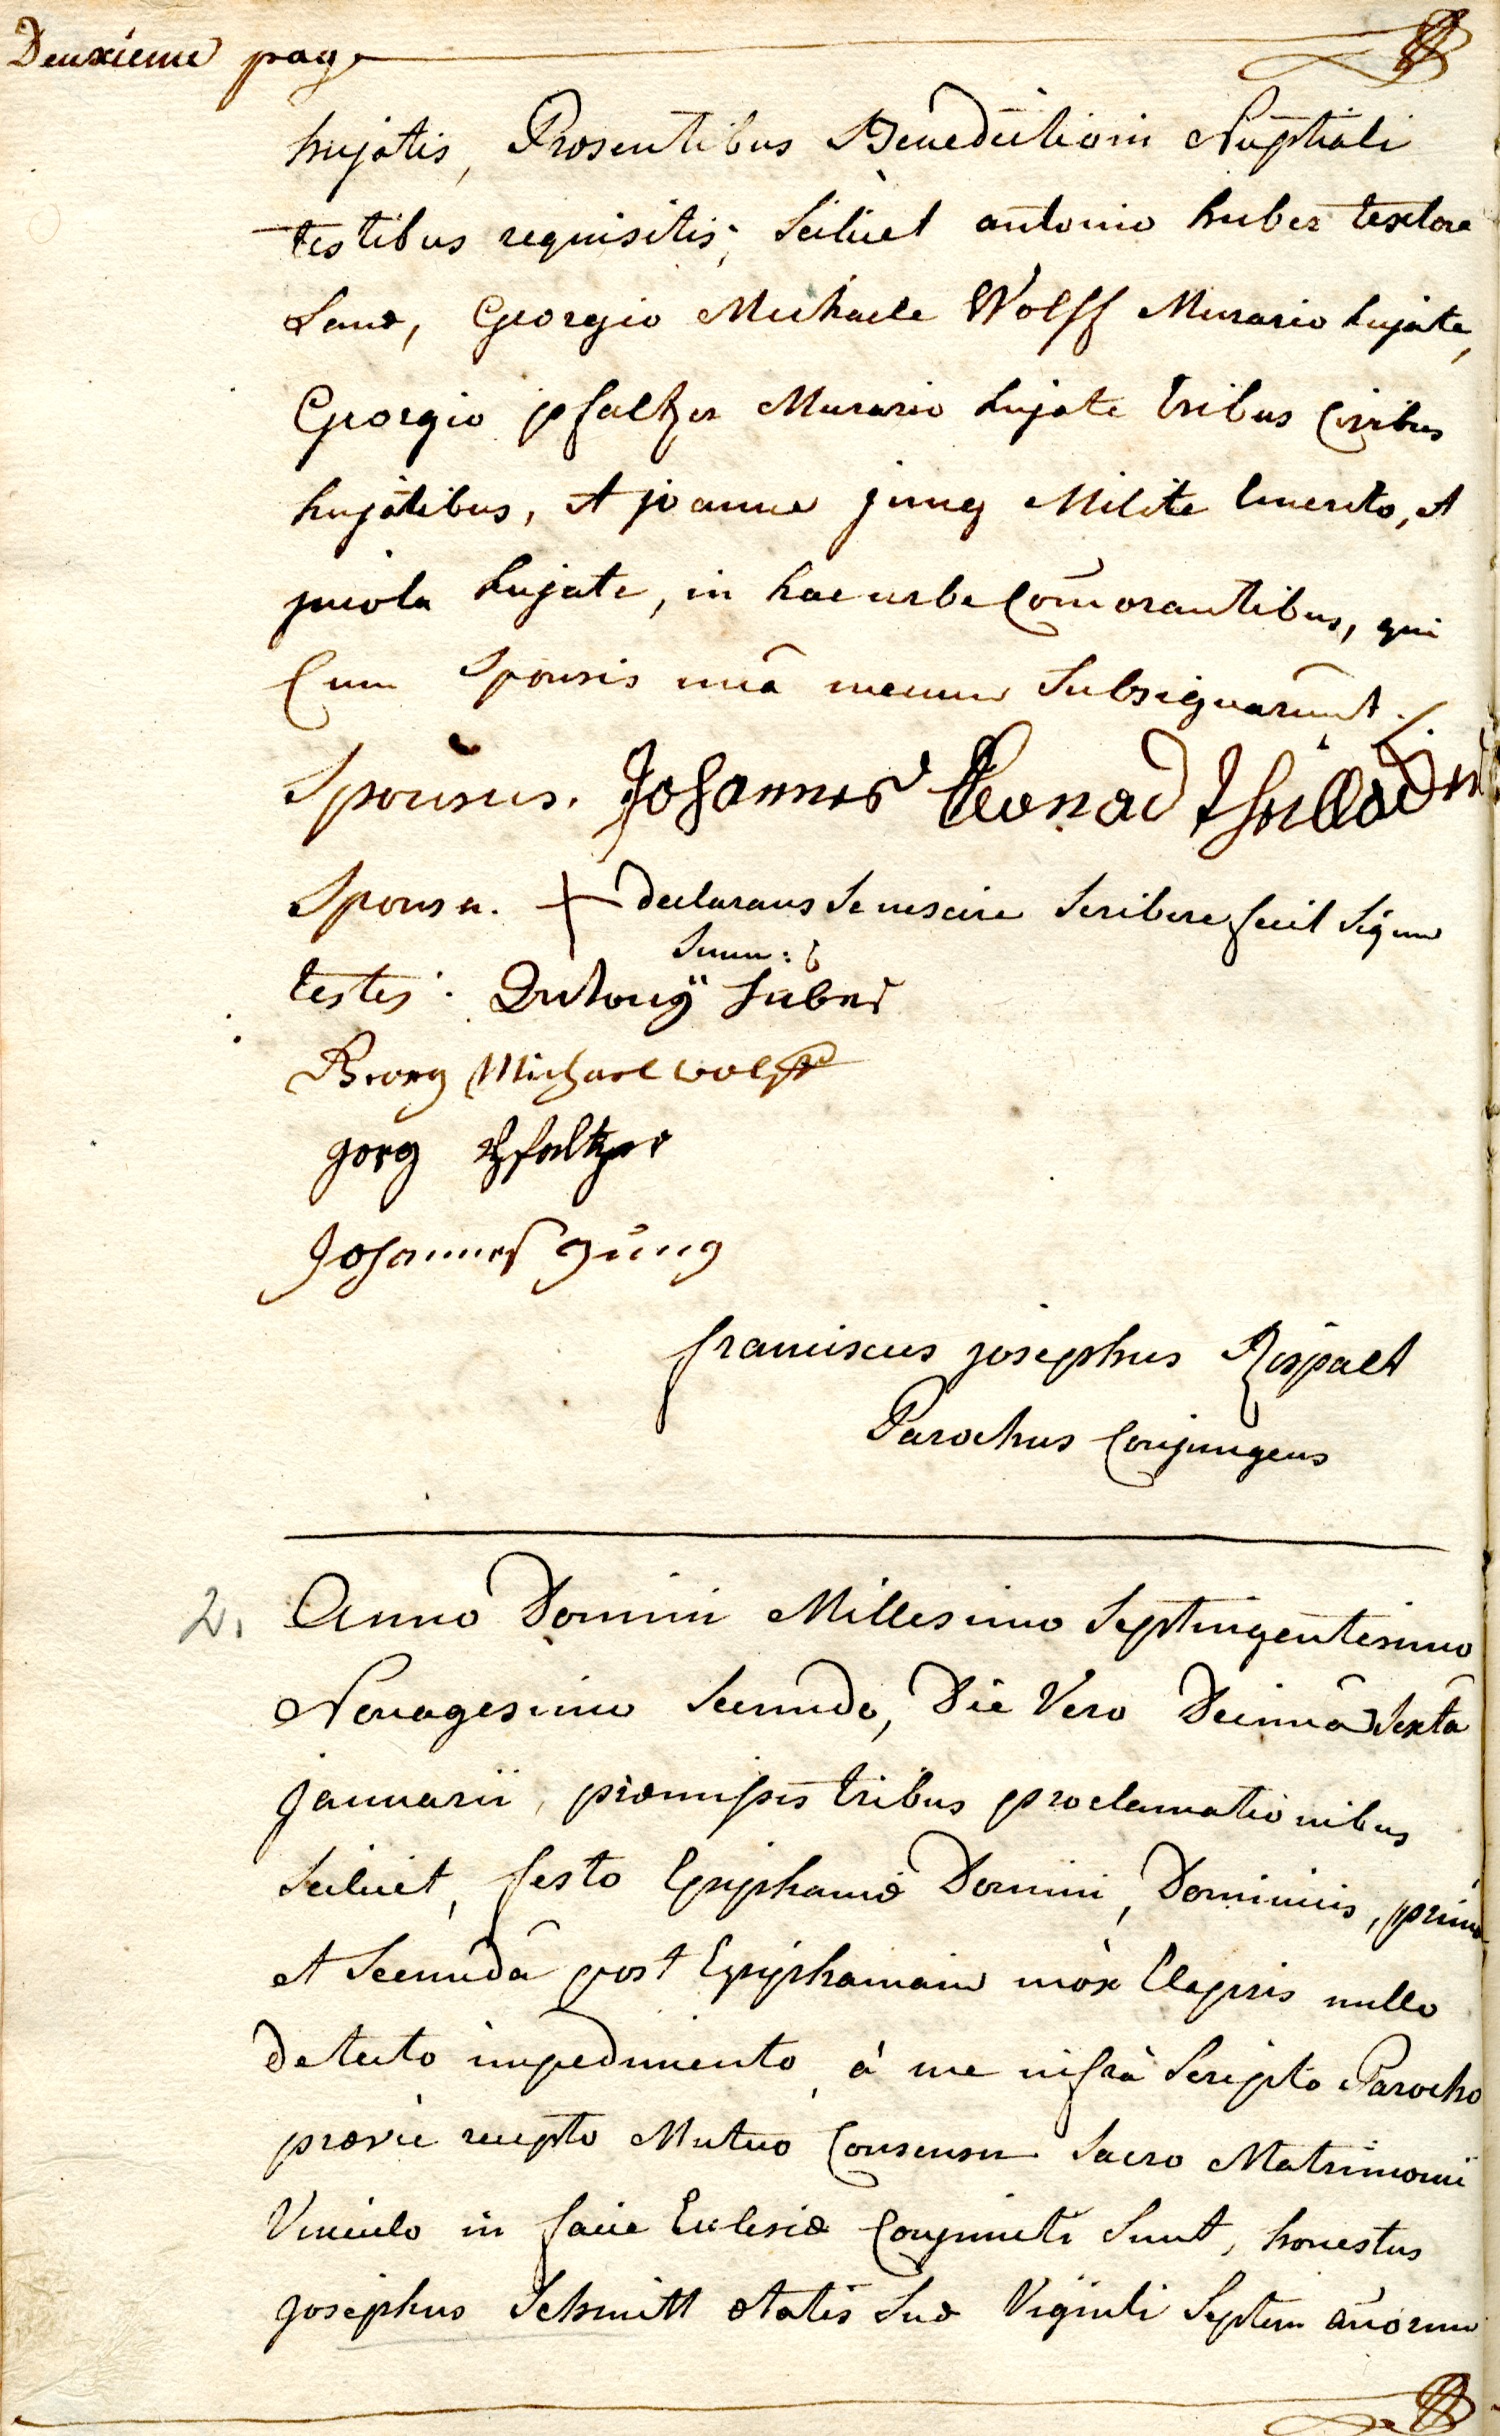 Deuxieme page
hujatis, Præsentibus Benedictioni Nuptiali
testibus requisitis, Scilicet antonio huber textore
Lanæ, Georgio Michaele Wolff Murario hujate,
Georgio pfaltzer Murario hujate tribus Civibus
hujatibus, et joanne jung Milite emerito, et
incola hujate, in hac urbe Com̄orantibus, qui
Cum Sponsis unâ mecum Subsignarunt.
Sponsus. Johannes
Sponsa. + declarans se nescire scribere fecit signum
Suum:
testes. Antony Huber
Georg Michael Wolff
Jorg Pfaltzer
Johannes Jung
franciscus josephus Rispalt
Parochus Conjungens
2. Anno Domini Millesimo Septingentesimo
Nonagesimo Secundo, Die Vero Decimâ Sextâ
januarii, præmissis tribus proclamationibus
Scilicet, festo Epiphaniæ Domini, Dominicis, primâ
et Secundâ post Epiphaniam mox Elapsis nullo
detecto impedimento, à me infrà Scripto Parocho
prævie recepto Mutuo Consensu Sacro Matrimonii
Vinculo in facie Ecclesiæ Conjuncti Sunt, honestus
josephus Schmitt ætatis Suæ Viginti Septem an̄orum